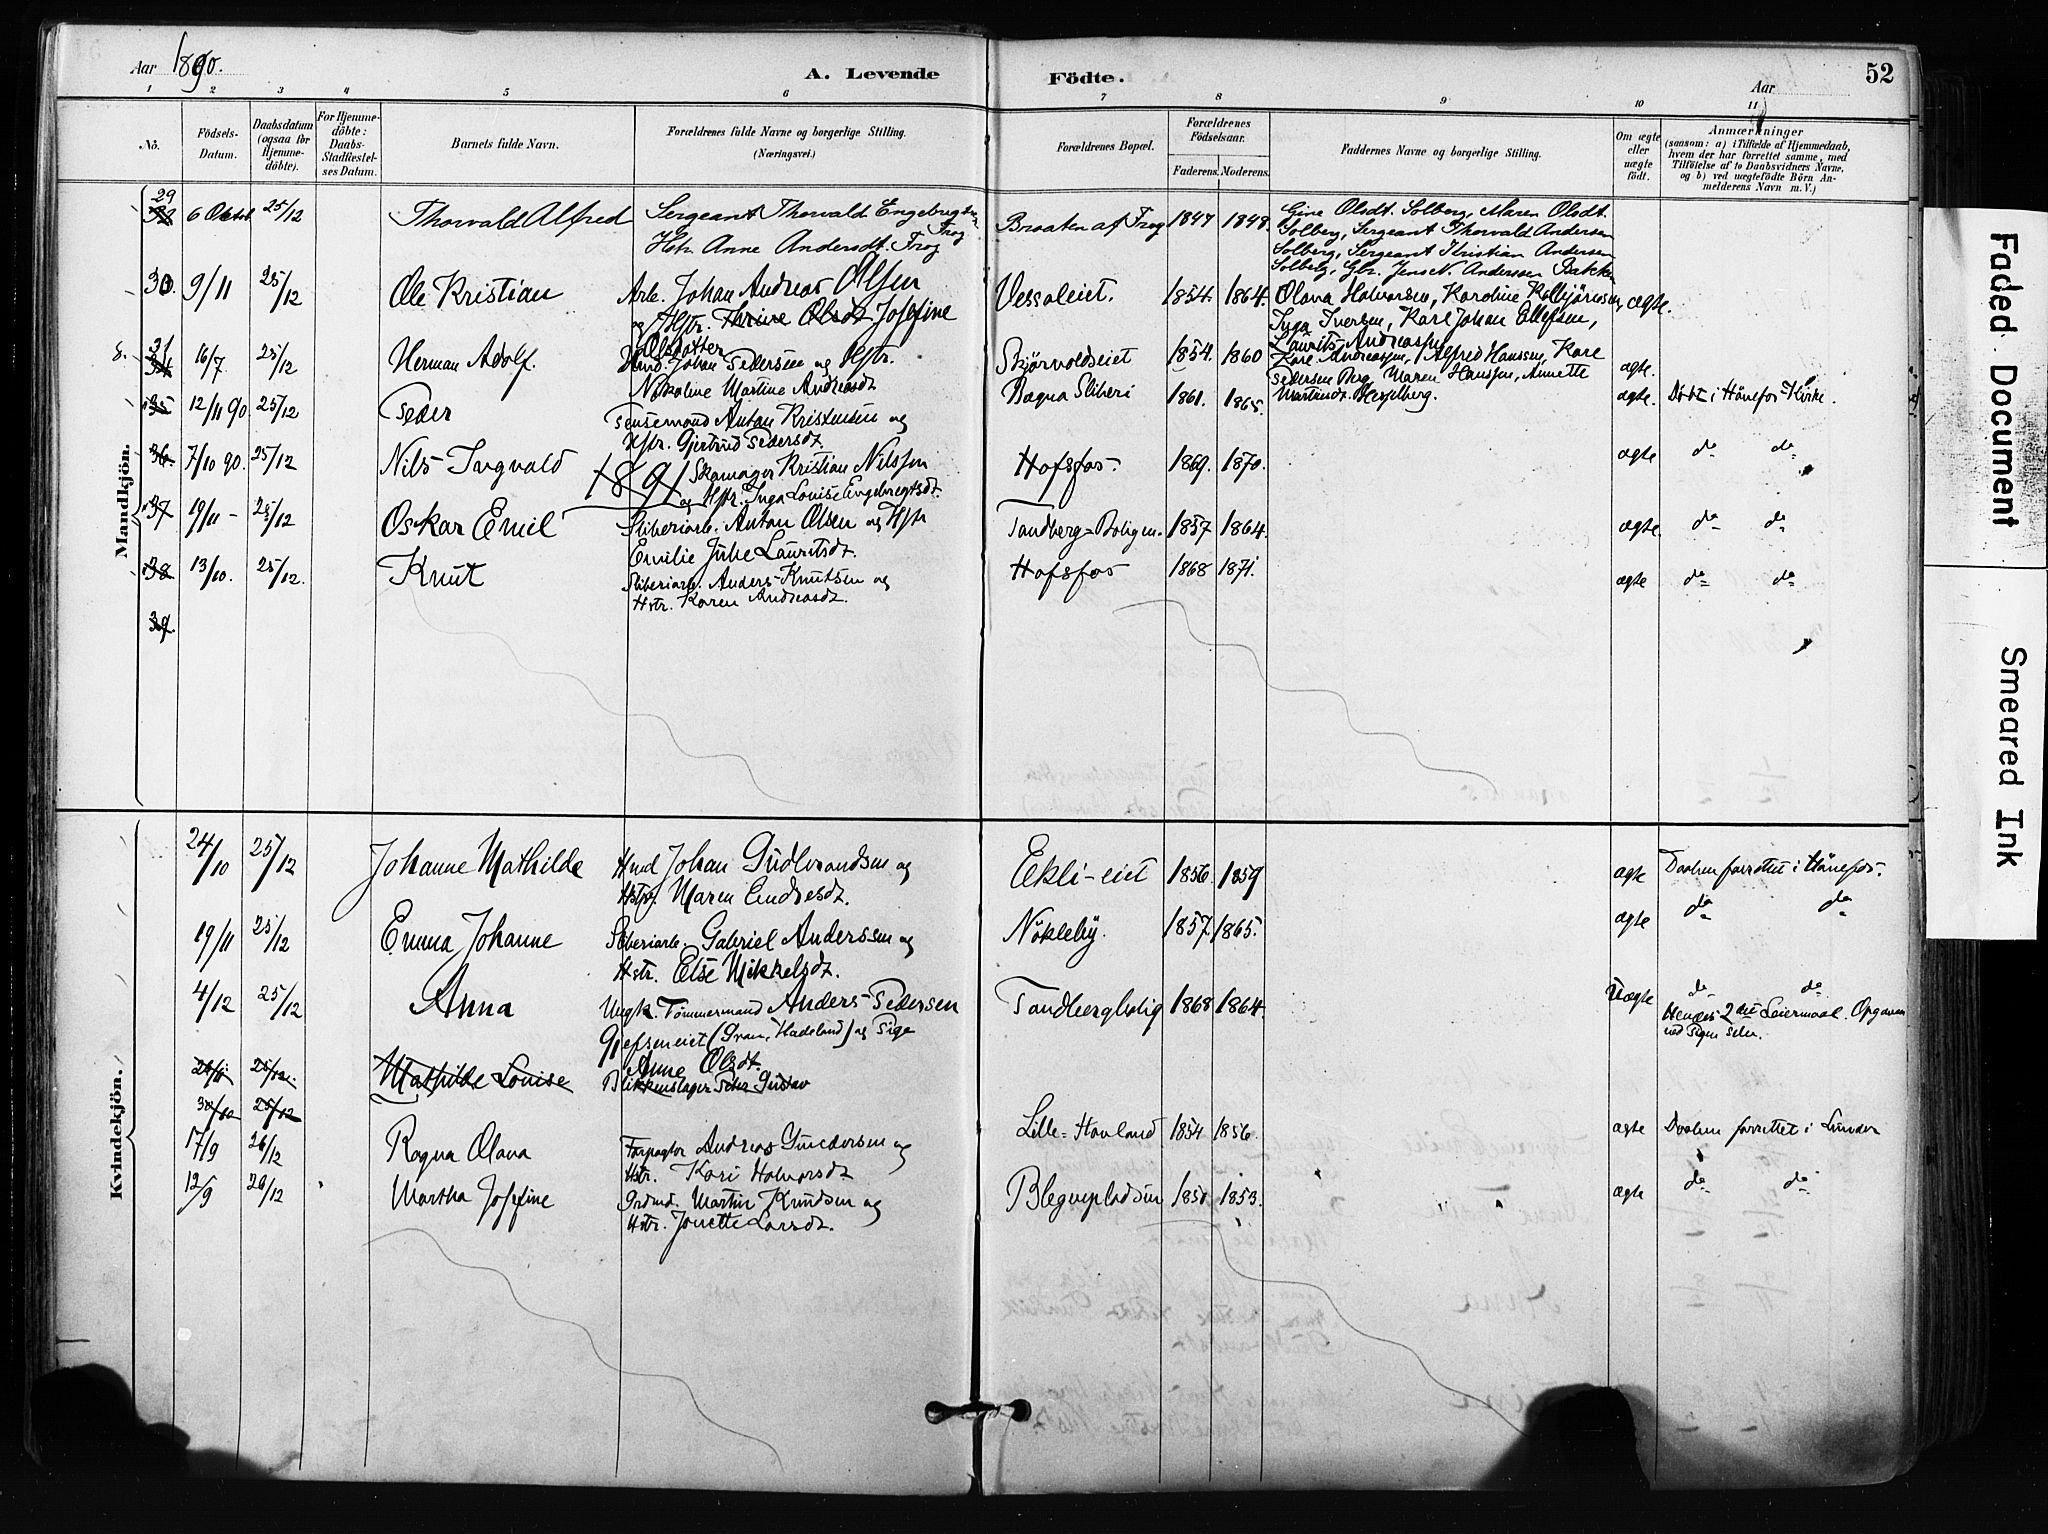 Aar 1890.
A. Levende
Födte.
Aar
52
1 2 3 4 5 6 7 8 9 10 11
No.
Födsels-
Datum.
Daabsdatum
(ogsaa for
Hjemme-
döbte).
For Hjemme-
döbte:
Daabs-
Stadfæstel-
ses Datum.
Barnets fulde Navn.
Forældrenes fulde Navne og borgerlige Stilling.
(Næringsvei.)
Forældrenes Bopæl.
Forældrenes
Födselsaar.
Faderens. Moderens.
Faddernes Navne og borgerlige Stilling.
Om ægte
eller
uægte
födt.
Anmærkninger
(saasom: a) i Tilfælde af Hjemmedaab,
hvem der har forrettet samme, med
Tilföielse af to Daabsvidners Navne,
og b) ved uægtefödte Börn An-
melderens Navn m. V.)
Mandkjön.
29
6 Oktob. 25/12 Thorvald Alfred
Sergeant Thorvald Engebregtsen Frog
Hstr. Anne Andersdt. Frog
Braaten af Frog 1847 1848.
Gine Olsdt. Solberg, Maren Olsdt.
Solberg, Sergeant Thorvald Andersen
Solberg, Sergeant Kristian Andersen
Solberg, Gbr. Jens N. Anderssen Bakken
30. 9/11 25/12 Ole Kristian
Arb. Johan Andreas Olsen
og Hstr. Thrine Olsdt Josefine
Olsdatter
Vessaleiet. 1854. 1864.
Olava Halvorsen, Karoline Kolbjörnsen,
Inga Iversen, Karl Johan Ellefsen,
Laurits Andreassen
ægte.
8. 31 34 16/7 25/12 Herman Adolf.
Hmd. Johan Pedersen og Hstr.
Nikoline Martine Andreasdt
Skjörvoldseiet 1854. 1860
Karl Andreassen, Alfred Hanssen, Karl
Pedersen Berg, Maren Hanssen, Annette
Martinsdt. Hesselberg.
ægte.
35 12/11 90 25/12 Peder
Tensemand Anton Kristensen og
Hstr. Gjertrud Pedersdt.
Bægna Sliberi 1861. 1865.
ægte. Döbt i Hönefos Kirke.
36. 7/10 90. 25/12 Nils Ingvald
1891
Skomager Kristian Nilssen
og Hstr. Inga Louise Engebregtsdt.
Hofsfos. 1869. 1870.
ægte do do
37 19/11 - 25/12 Oskar Emil
Sliberiarb. Anton Olsen og Hstr
Emilie Julie Lauritsdt.
Tandberg=Boligen. 1857 1864.
ægte. do do
38 13/10. 25/12. Knut
Sliberiarb. Anders Knutsen og
Hstr. Karen Andreasdt.
Hofsfos 1868 1871.
ægte do do
39.
Kvindekjön.
24/10 25/12 Johanne Mathilde
Hmd Johan Gudbrandsen og
Hstr. Maren Endresdt.
Ekli-eiet 1856. 1859
ægte Daaben forrettet i Hönefos.
19/11 25/12 Emma Johanne
Sliberiarb. Gabriel Anderssen og
Hstr. Else Mikkelsdt.
Nökleby. 1857. 1865.
ægte do do
4/12 25/12 Anna
Ungk. Tömmermand Anders Pedersen
Gjefseneiet (Gran, Hadeland) og Pige
Anne Olsdt.
Tandbergbolig 1868 1864.
Uægte do do
Hendes 2det Leiermaal. Opgaven
ved Pigen selv.
25/12. Mathilde Louise
Blikkenslager Peter Gustav
30/10 25/12
17/9 26/12 Ragna Olava
Forpagter Andreas Gundersen og
Hstr. Kari Halvorsdt
Lille=Hovland 1854 1856.
ægte Daaben forrettet i Lunder
12/9 26/12 Martha Josefine
Grdmd. Martin Knudsen og
Hstr. Jonette Larsdt.
Blegenpladsen 1850. 1853.
ægte do do
Faded Document
Smeared Ink